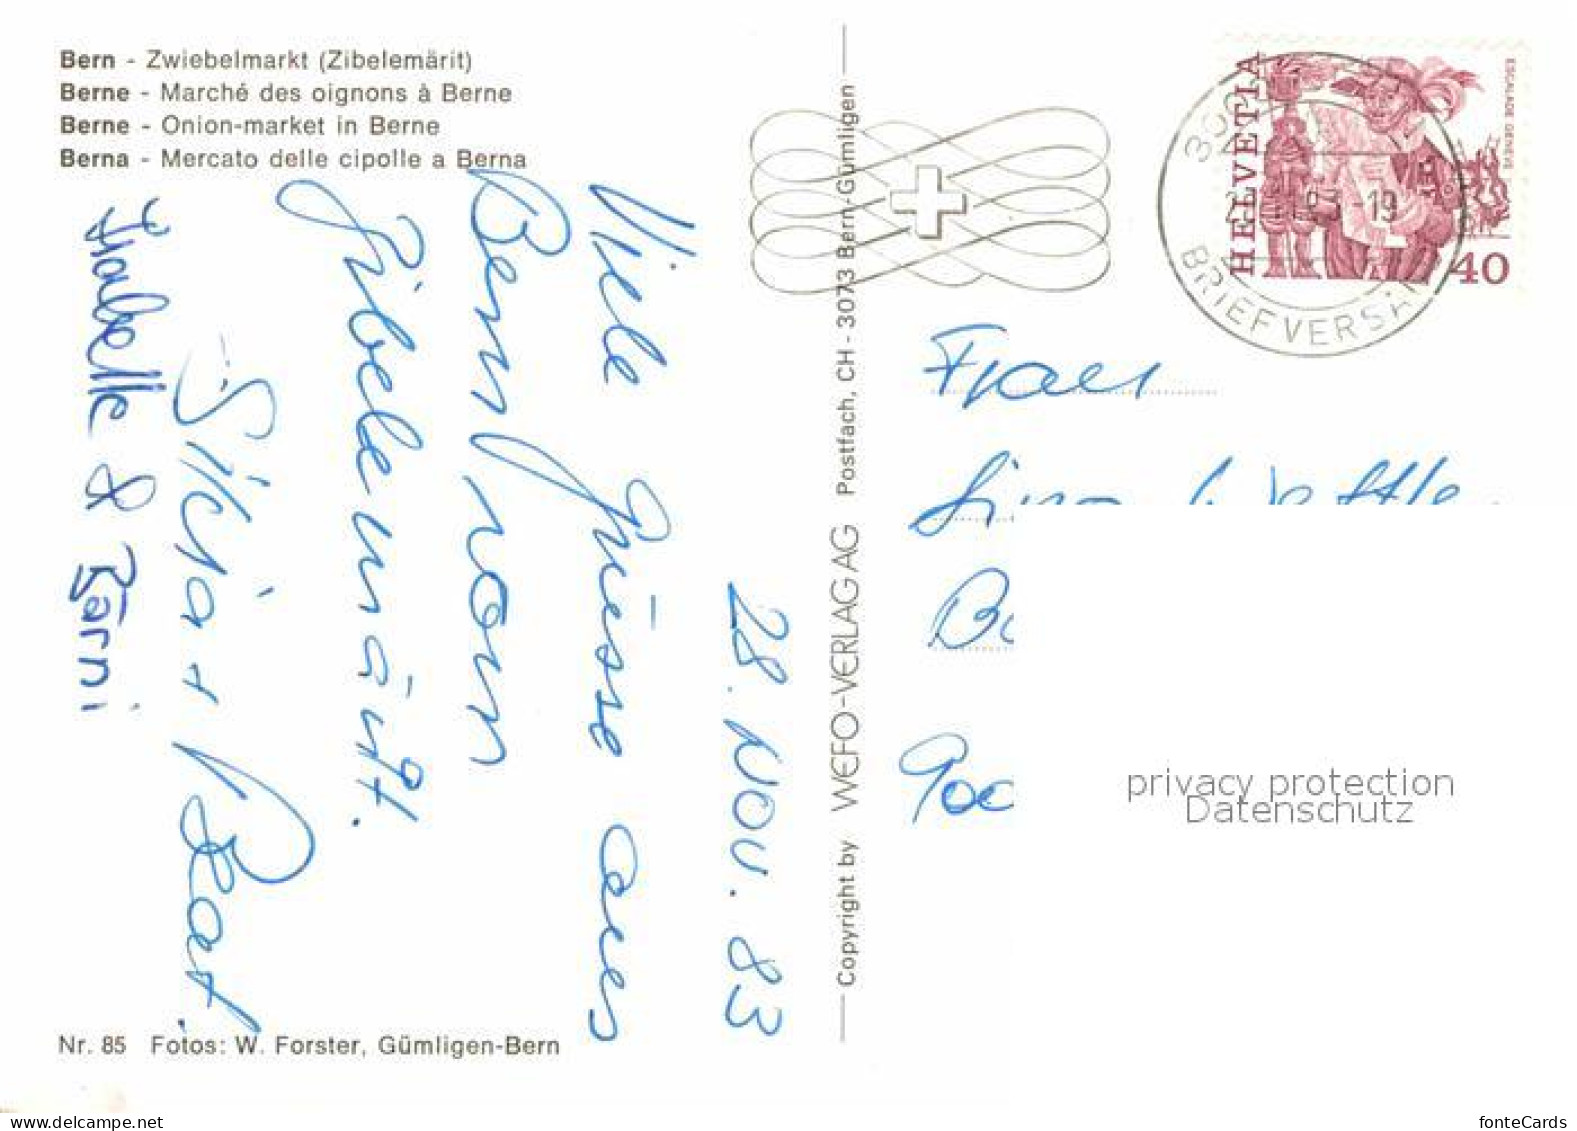 Bern - Zwiebelmarkt (Zibelemärit)
Berne - Marché des oignons à Berne
Berne - Onion-market in Berne
Berna - Mercato delle cipolle a Berna
28. NOV. 83
Viele Grüsse aus
Bern vom
Zibelemärit.
Silvia + Beat.
Isabelle & Bärni
Nr. 85 Fotos: W. Forster, Gümligen-Bern
Copyright by WEFO-VERLAG AG Postfach, CH - 3073 Bern-Gümligen
HELVETIA
ESCALADE GENÈVE
40
BRIEFVERSA
Frau
900
privacy protection
Datenschutz
fonteCards
www.delcampe.net